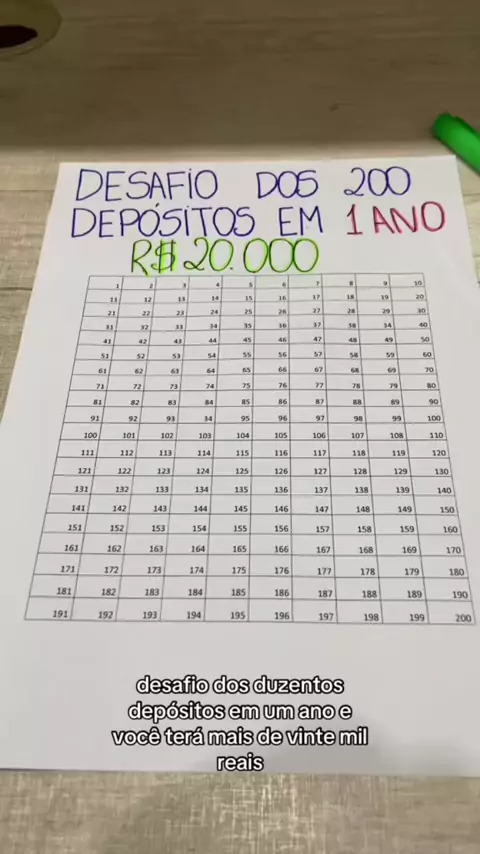 DESAFIO DOS 200
DEPÓSITOS EM 1 ANO
R$ 20.000
1 2 3 4 5 6 7 8 9 10
11 12 13 14 15 16 17 18 19 20
21 22 23 24 25 26 27 28 29 30
31 32 33 34 35 36 37 38 34 40
41 42 43 44 45 46 47 48 49 50
51 52 53 54 55 56 57 58 59 60
61 62 63 64 65 66 67 68 69 70
71 72 73 74 75 76 77 78 79 80
81 82 83 84 85 86 87 88 89 90
91 92 93 34 95 96 97 98 99 100
100 101 102 103 104 105 106 107 108 110
111 112 113 114 115 116 117 118 119 120
121 122 123 124 125 126 127 128 129 130
131 132 133 134 135 136 137 138 139 140
141 142 143 144 145 146 147 148 149 150
151 152 153 154 155 156 157 158 159 160
161 162 163 164 165 166 167 168 169 170
171 172 173 174 175 176 177 178 179 180
181 182 183 184 185 186 187 188 189 190
191 192 193 194 195 196 197 198 199 200
desafio dos duzentos
depósitos em um ano e
você terá mais de vinte mil
reais